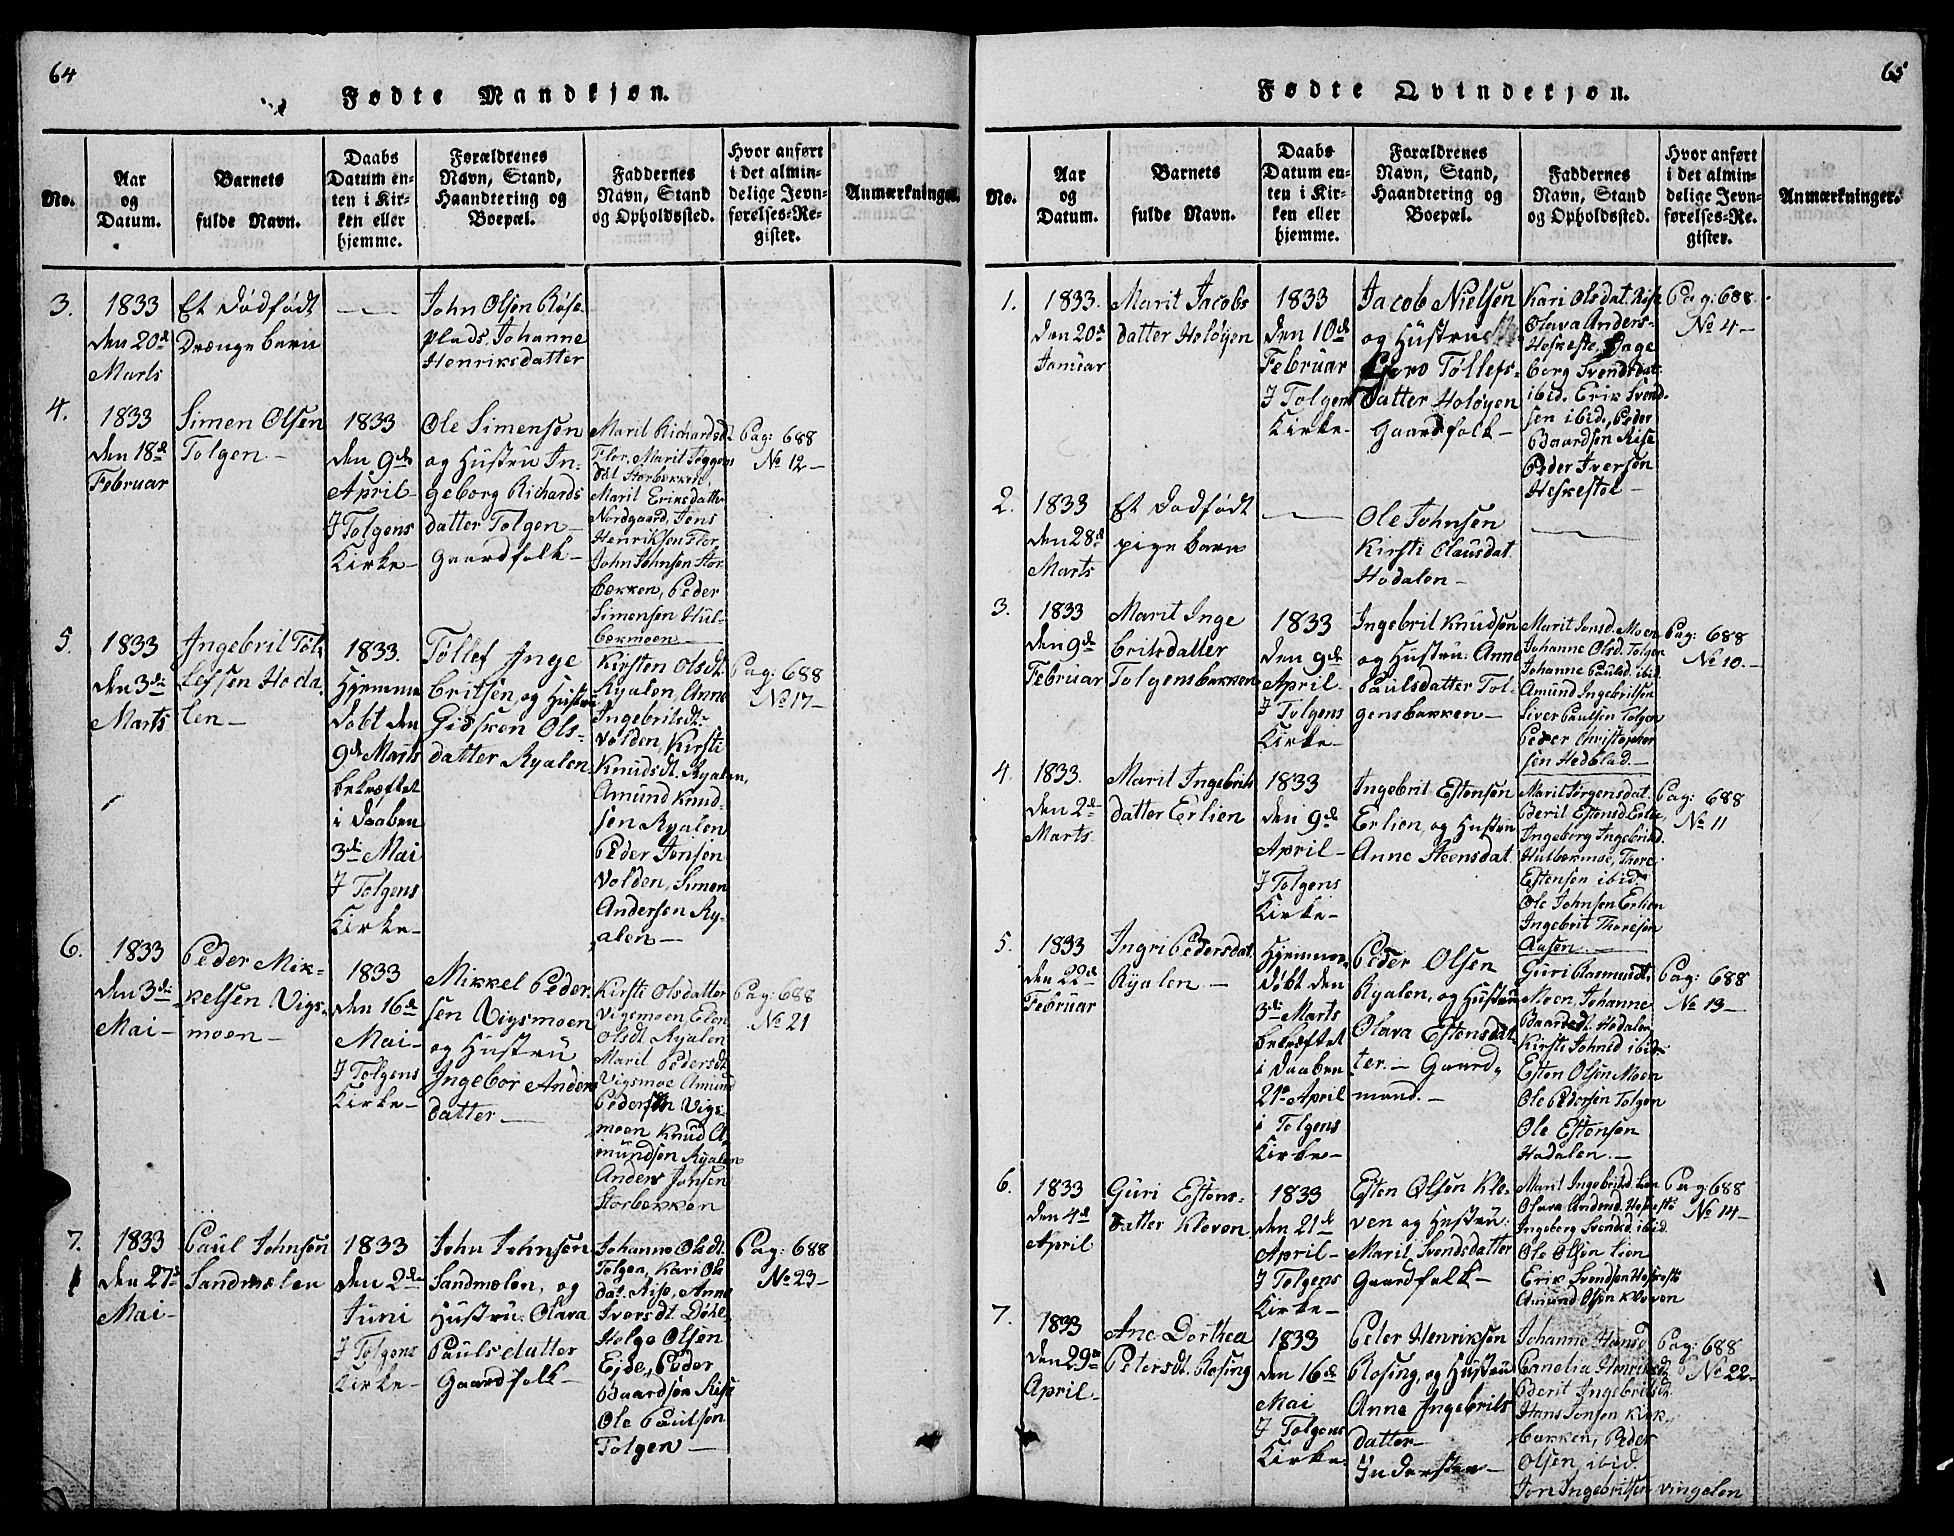 64
Fødte Mandkjøn.
No.
Aar
og
Datum.
Barnets
fulde Navn.
Daabs
Datum en-
ten i Kir-
ken eller
hjemme.
Forældrenes
Navn, Stand,
Haandtering og
Boepæl.
Faddernes
Navn, Stand
og Opholdssted.
Hvor anført
i det almin-
delige Jevn-
førelses-Re-
gister.
Anmærkninger.
3.
1833
den 20de
Marts
Et Dødfødt
Drænge barn
John Olsen Røse
plads. Johanne
Henriksdatter
4.
1833
den 18de
Februar
Simen Olsen
Tolgen.-
1833
den 9de
April-
I Tolgens
Kirke-
Ole Simensen
og Hustru In-
geborg Richards
datter Tolgen-
Gaardfolk-
Marit Richardsdt
Flor, Marit
Storbækken,
Marit Eriksdatter
Nordgaard, Jens
Henriksen Flor
John Johnsen Stor
bækken, Peder
Simensen Hul-
bækmoen
Pag: 688
No 12-
5.
1833
den 3de
Marts
Ingebrit Töl-
lefsen Hoda
len-
1833.
Hjemme
døbt den
9de Marts
bekræftet
i Daaben
3de Mai
I Tolgens
Kirke-
Töllef Inge
britsen, og Hustru
Gidsken Ols-
datter Ryalen
Kirsten Olsdt
Ryalen, Anne
Ingebritsdt
Volden, Kirsti
Knudsdt. Ryalen,
Amund Knud-
sen Ryalen
Peder Jonsen
Volden, Simen
Andersen Ry-
alen-
Pag: 688
No 17-
6.
1833
den 3de
Mai-
Peder Mik-
kelsen Vigs-
moen-
1833
den 16de
Mai-
I Tolgens
Kirke-
Mikkel Peder
sen Vigsmoen
og Hustru
Ingebor Anders
datter-
Kirsti Olsdatter
Vigsmoen Elen
Olsdt Ryalen
Marit Pedersdt
Vigsmoe Amund
Pedersen Vigs-
moen Knud A-
mundsen Ryalen
Anders Jonsen
Storbekken
Pag: 688
No 21
7.
1833
den 27de
Mai-
Paul Johnsen
Sandmælen
1833
den 2de
Juni
I Tolgens
Kirke-
John Johnsen
Sandmælen, og
Hustru: Olava
Paulsdatter
Gaardfolk-
Johanne Olsdt.
Tolgen, Kari Ols
dat. Rise, Anne
Iversdt. Döhl
Holge Olsen
Eide, Peder
Baardsen Rise
Ole Paulsen
Tolgen-
Pag: 688
No 23-
65
Fødte Qvindekjøn.
No.
Aar
og
Datum.
Barnets
fulde Navn.
Daabs
Datum en-
ten i Kir-
ken eller
hjemme.
Forældrenes
Navn, Stand,
Haandtering og
Boepæl.
Faddernes
Navn, Stand
og Opholdssted.
Hvor anført
i det almin-
delige Jevn-
førelses-Re-
gister.
Anmærkninger.
1.
1833.
den 20de
Januar
Marit Jacobs
datter Holøyen
1833
den 10de
Februar
I Tolgens
Kirke-
Jacob Nielsen
og Hustru
Guro Töllefs-
datter Holøyen
Gaardfolk-
Kari Olsdat. Rise
Olava Anders-
Heskeste, Inge
borg Svendsdat
ibid. Erik Svend-
sen ibid., Peder
Baardsen Rise
Peder Iversen
Heskestol-
Pag: 688
No 4-
2.
1833
den 28de
Marts
Et Dødfødt
pige barn
Ole Johnsen
Kirsti Olausdat
Hodalen-
3.
1833
den 9de
Februar
Marit Inge
britsdatter
Tolgensbakken
1833
den 9de
April
I Tolgens
Kirke-
Ingebrit Knudsen
og Hustru: Anne
Paulsdatter Tol-
gensbakken-
Marit Jonsd. Moen
Johanne Olsd. Tolgen
Johanne Paulsd. ibid.
Amund Ingebritsen
Siver Paulsen Tolgen
Peder Christopher
sen Hedblad.-
Pag: 688
No 10.-
4.
1833.
den 2de
Marts
Marit Ingebrits
datter Erlien
1833
den 9de
April-
I Tolgens
Kirke-
Ingebrit Estensen
Erlien, og Hustru
Anne Steensdat
Marit Jörgensdat.
Berit Estensd Erlie,
Ingeborg Ingebritsd.
Hulbækmoe, Thore
Estensen ibid.
Ole Johnsen Erlien
Ingebrit Thoresen
Aasen.-
Pag: 688
No 11
5.
1833
den 22de
Februar
Ingri Pedersdat.
Ryalen-
Hjemme-
døbt den
3de Marts
bekræftet
i Daaben
21de April
i Tolgens
Kirke-
Peder Olsen
Ryalen, og Hustru
Olava Estensdat-
ter.- Gaard,
mand.-
Guri Rasmusdt.
Moen, Johanne
Baardsdt. Hodalen
Kirsti Johnsd ibid:
Esten Olsen Moen
Ole Pedersen Tolgen
Ole Estensen
Hodalen.-
Pag: 688
No 13-
6.
1833
den 4de
April
Guri Estens-
datter Kleven
1833
den 21de
April-
I Tolgens
Kirke-
Esten Olsen Kle-
ven og Hustru:
Marit Svendsdatter
Gaardfolk-
Marit Ingebritsd. Lien
Olava Andersd. Heskestø
Ingeborg Svendsd. ibid.
Ole Olsen Lien
Erik Svendsen Heskestø
Amund Olsen Kleven
Pag: 688
No 14-
7.
1833
den 29de
April-
Ane Dorthea
Petersdt. Rosing
1833
den 16de
Mai
I Tolgens
Kirke
Peter Henriksen
Rosing, og Hustru
Anne Ingebrits
datter-
Inderster-
Johanne Hansd
Henriksdt
Berit Ingebritsdt
Hans Jonsen Kirk,
bakken, Peder
Olsen, ibid.
Jon Ingebritsen Vingelen
Pag: 688
No 22-